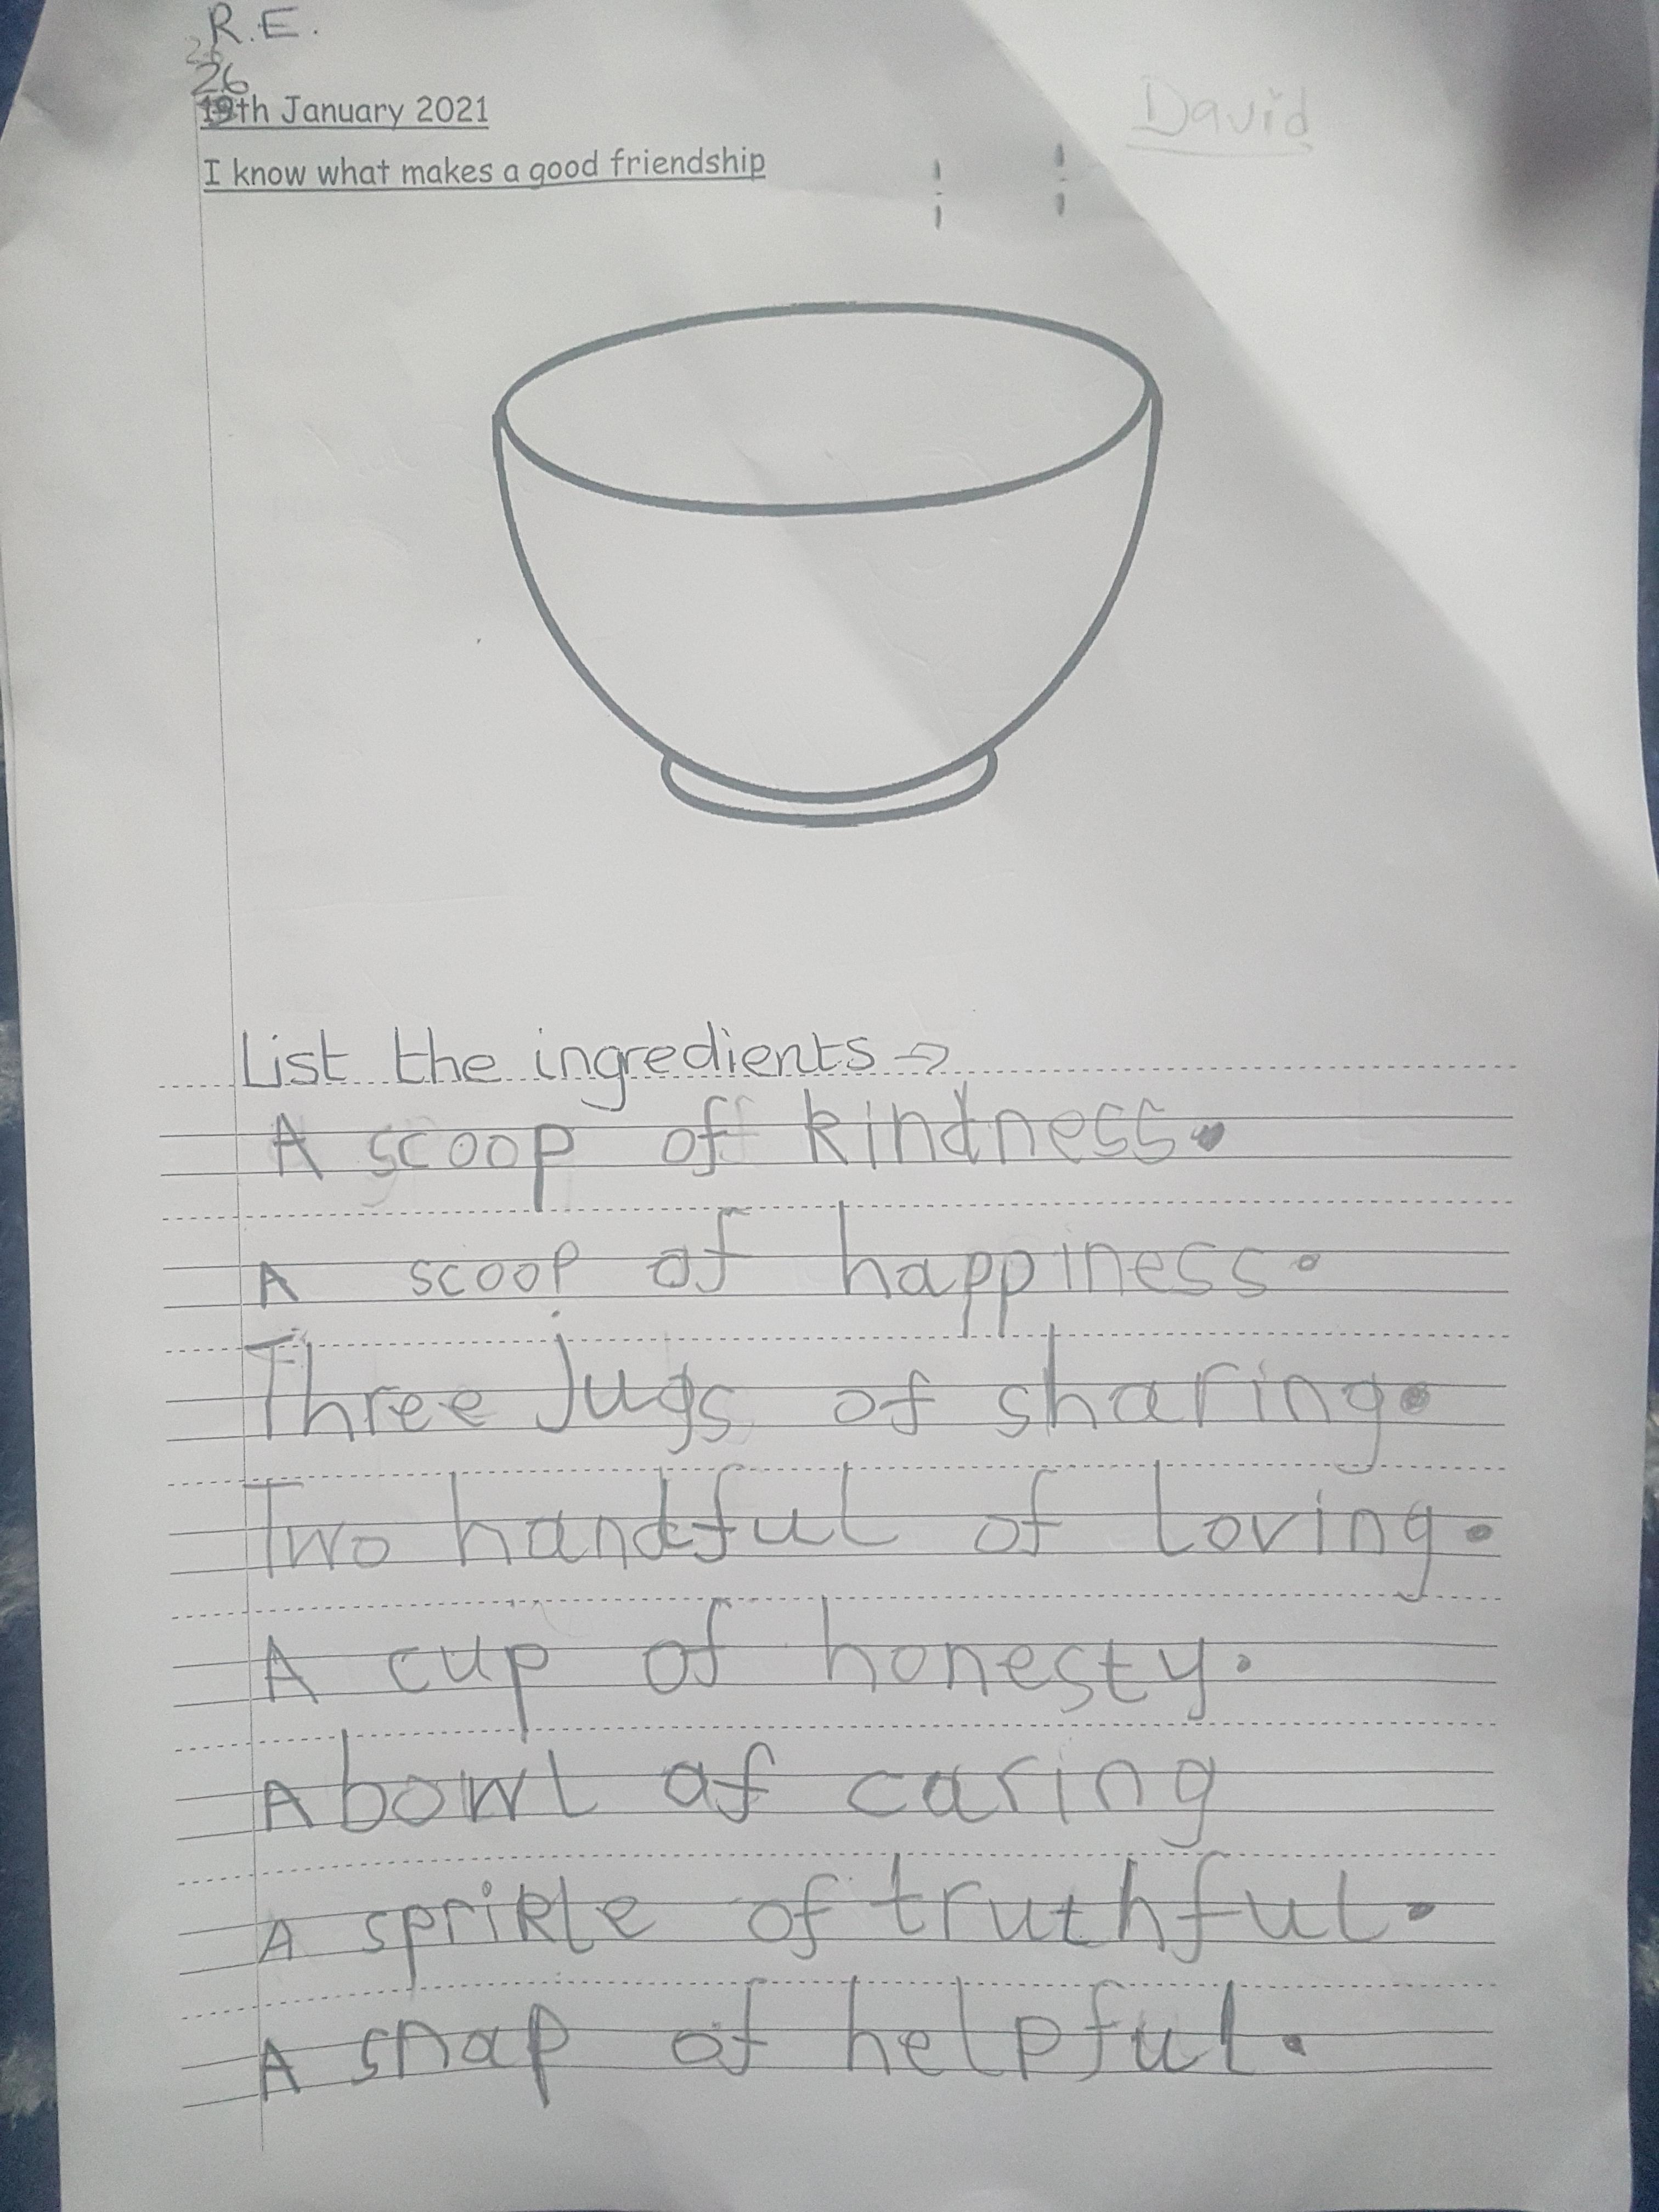 R.E.
26
19th January 2021
David
I know what makes a good friendship
List the ingredients →
A scoop of kindness.
A scoop of happiness.
Three jugs of sharing.
Two handful of loving.
A cup of honesty.
A bowl of caring
A sprikle of truthful.
A snap of helpful.